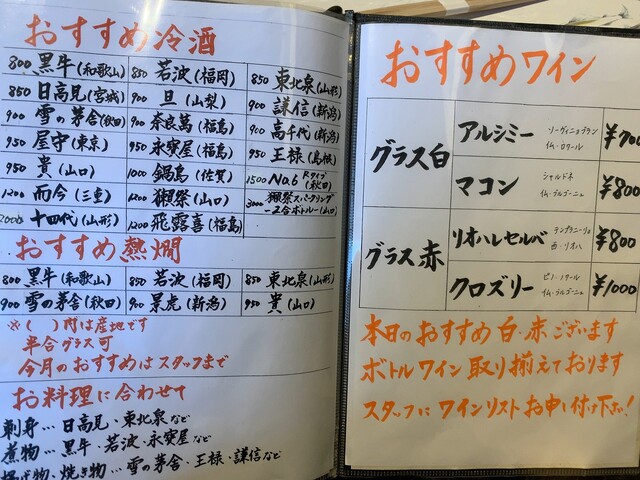 おすすめ冷酒
800 黒牛(和歌山) 850 若波(福岡) 850 東北泉(山形)
850 日高見(宮城) 900 旦(山梨) 900 謙信(新潟)
900 雪の茅舎(秋田) 900 奈良萬(福島) 900 高千代(新潟)
950 屋守(東京) 950 永安屋(福島) 950 王禄(島根)
950 貴(山口) 1000 鍋島(佐賀) 1500 No.6 Rタイプ(秋田)
1200 而今(三重) 1200 獺祭(山口) 3000 獺祭スパークリング -2合ボトルー(山口)
2000 十四代(山形) 1200 飛露喜(福島)
おすすめ熱燗
800 黒牛(和歌山) 850 若波(福岡) 850 東北泉(山形)
900 雪の茅舎(秋田) 900 景虎(新潟) 950 貴(山口)
※( )内は産地です
半合グラス可
今月のおすすめはスタッフまで
お料理に合わせて
刺身…日高見、東北泉など
煮物…黒牛・若波・永安屋など
揚げ物・焼き物…雪の茅舎・王禄・謙信など
おすすめワイン
グラス白
アルシミー ソーヴィニョブラン 仏・ロワール ¥700
マコン シャルドネ 仏・ブルゴーニュ ¥800
グラス赤
リオハレセルバ テンプラニーリョ 西・リオハ ¥800
クロズリー ピノ・ノワール 仏・ブルゴーニュ ¥1000
本日のおすすめ白・赤ございます
ボトルワイン取り揃えております
スタッフにワインリストお申し付け下さい!